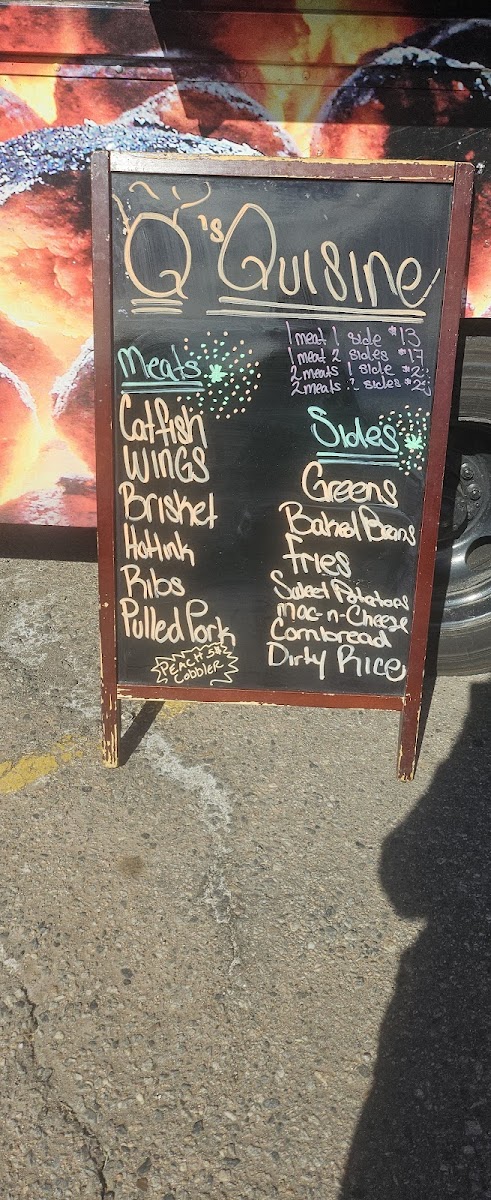 Q's Quisine
1 meat 1 side $13
1 meat 2 sides $17
2 meats 1 side
2 meats 2 sides
Meats
Catfish
WINGS
Brisket
Hotlink
Ribs
Pulled Pork
PEACH 5$
Cobbler
Sides
Greens
Baked Beans
fries
Salad Potatoes
mac-n-Cheese
Cornbread
Dirty Rice